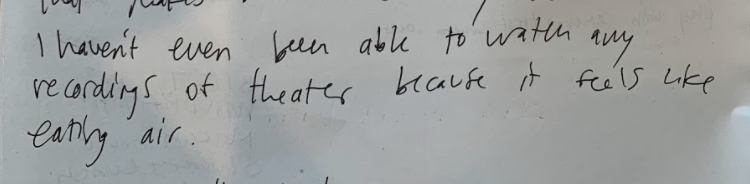 I haven't even been able to watch any
recordings of theater because it feels like
eating air.